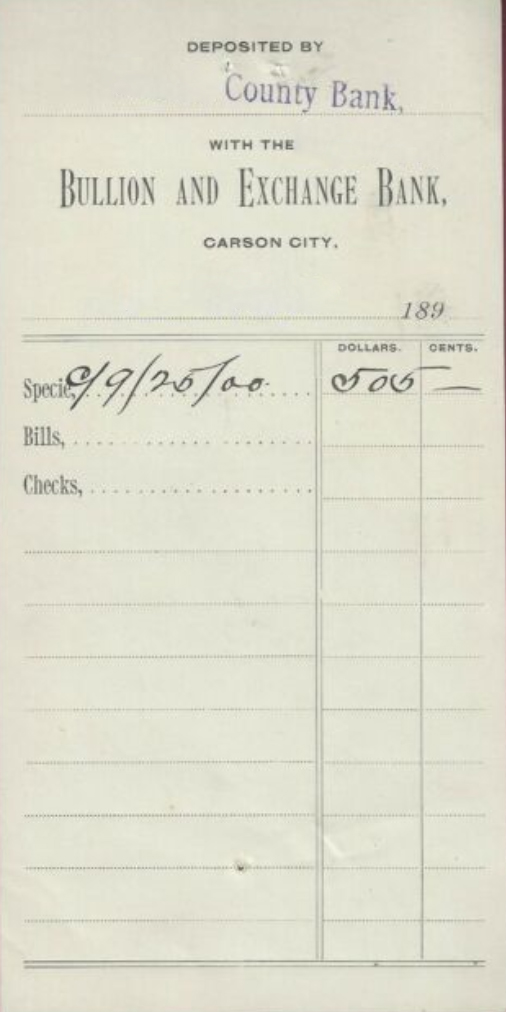 DEPOSITED BY
County Bank,
WITH THE
BULLION AND EXCHANGE BANK,
CARSON CITY,
189
DOLLARS. CENTS.
Specie, 9/25/00 505 —
Bills,
Checks,